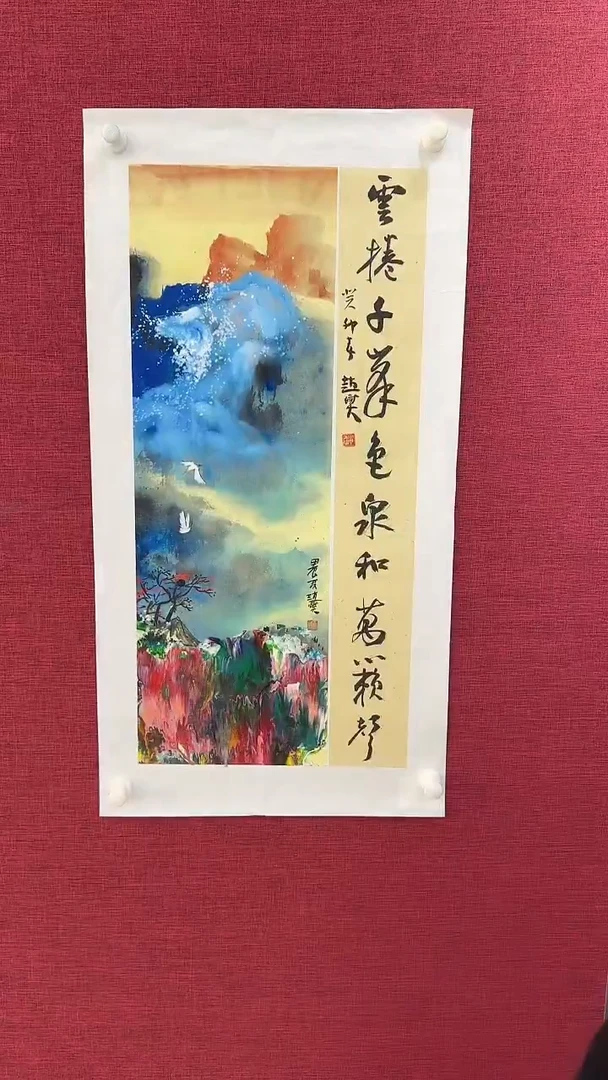 雲捲千峯色泉和萬籟聲
癸卯年 趙奕